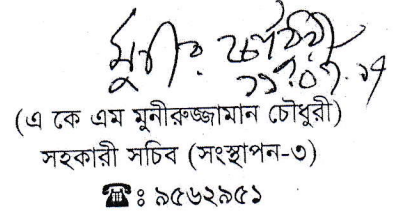 মুনীর চৌধুরী
(এ কে এম মুনীরুজ্জামান চৌধুরী)
সহকারী সচিব (সংস্থাপন-৩)
☎ঃ ৯৫৬২৯৫১